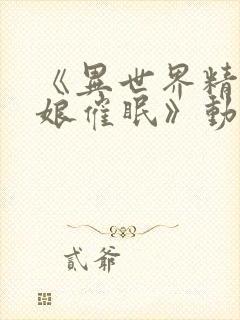 《異世界精
娘催眠》動
貳爺